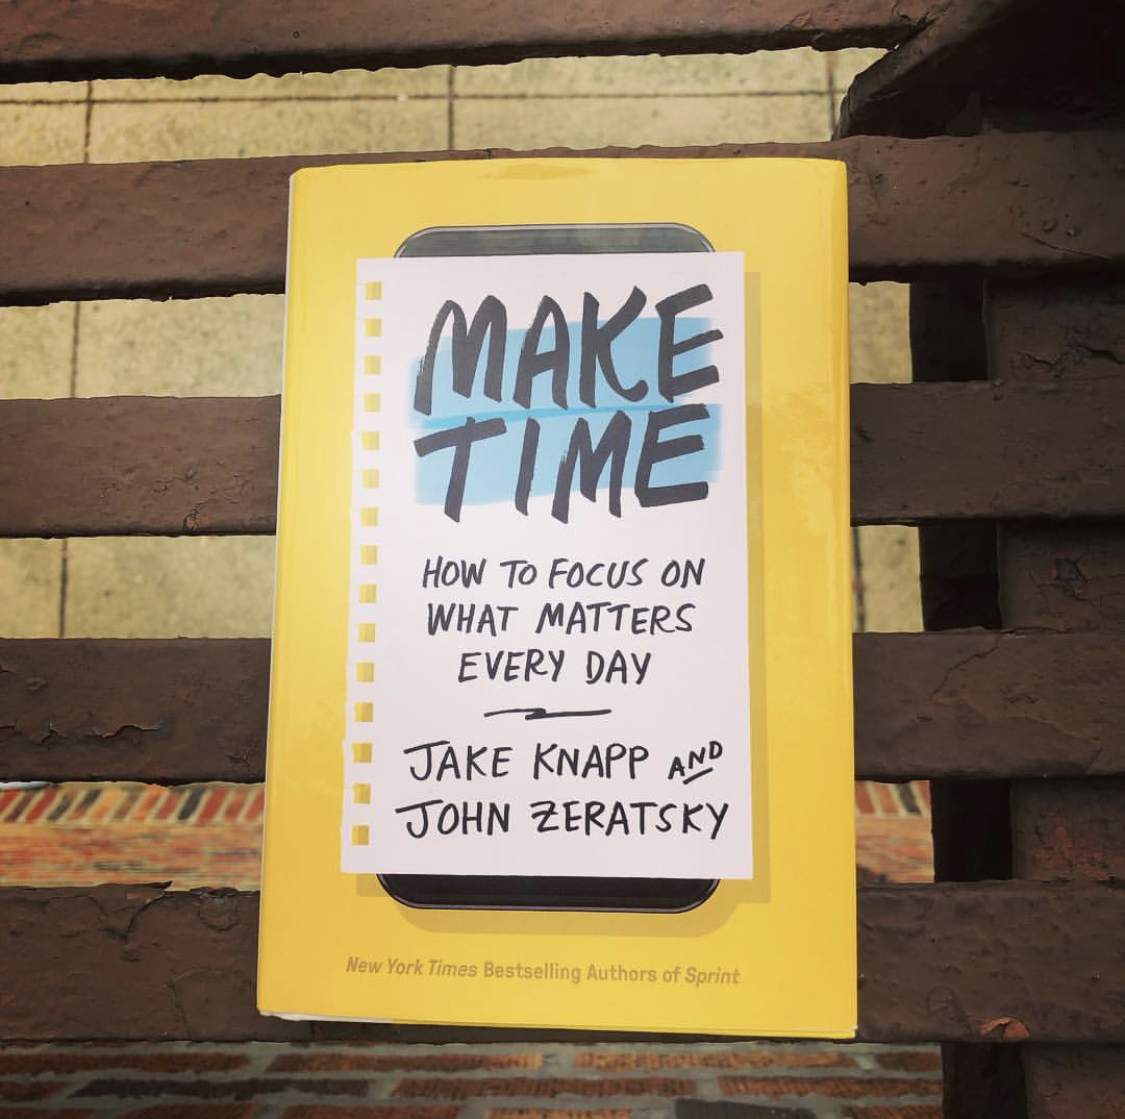 MAKE
TIME
HOW TO FOCUS ON
WHAT MATTERS
EVERY DAY
JAKE KNAPP AND
JOHN ZERATSKY
New York Times Bestselling Authors of Sprint